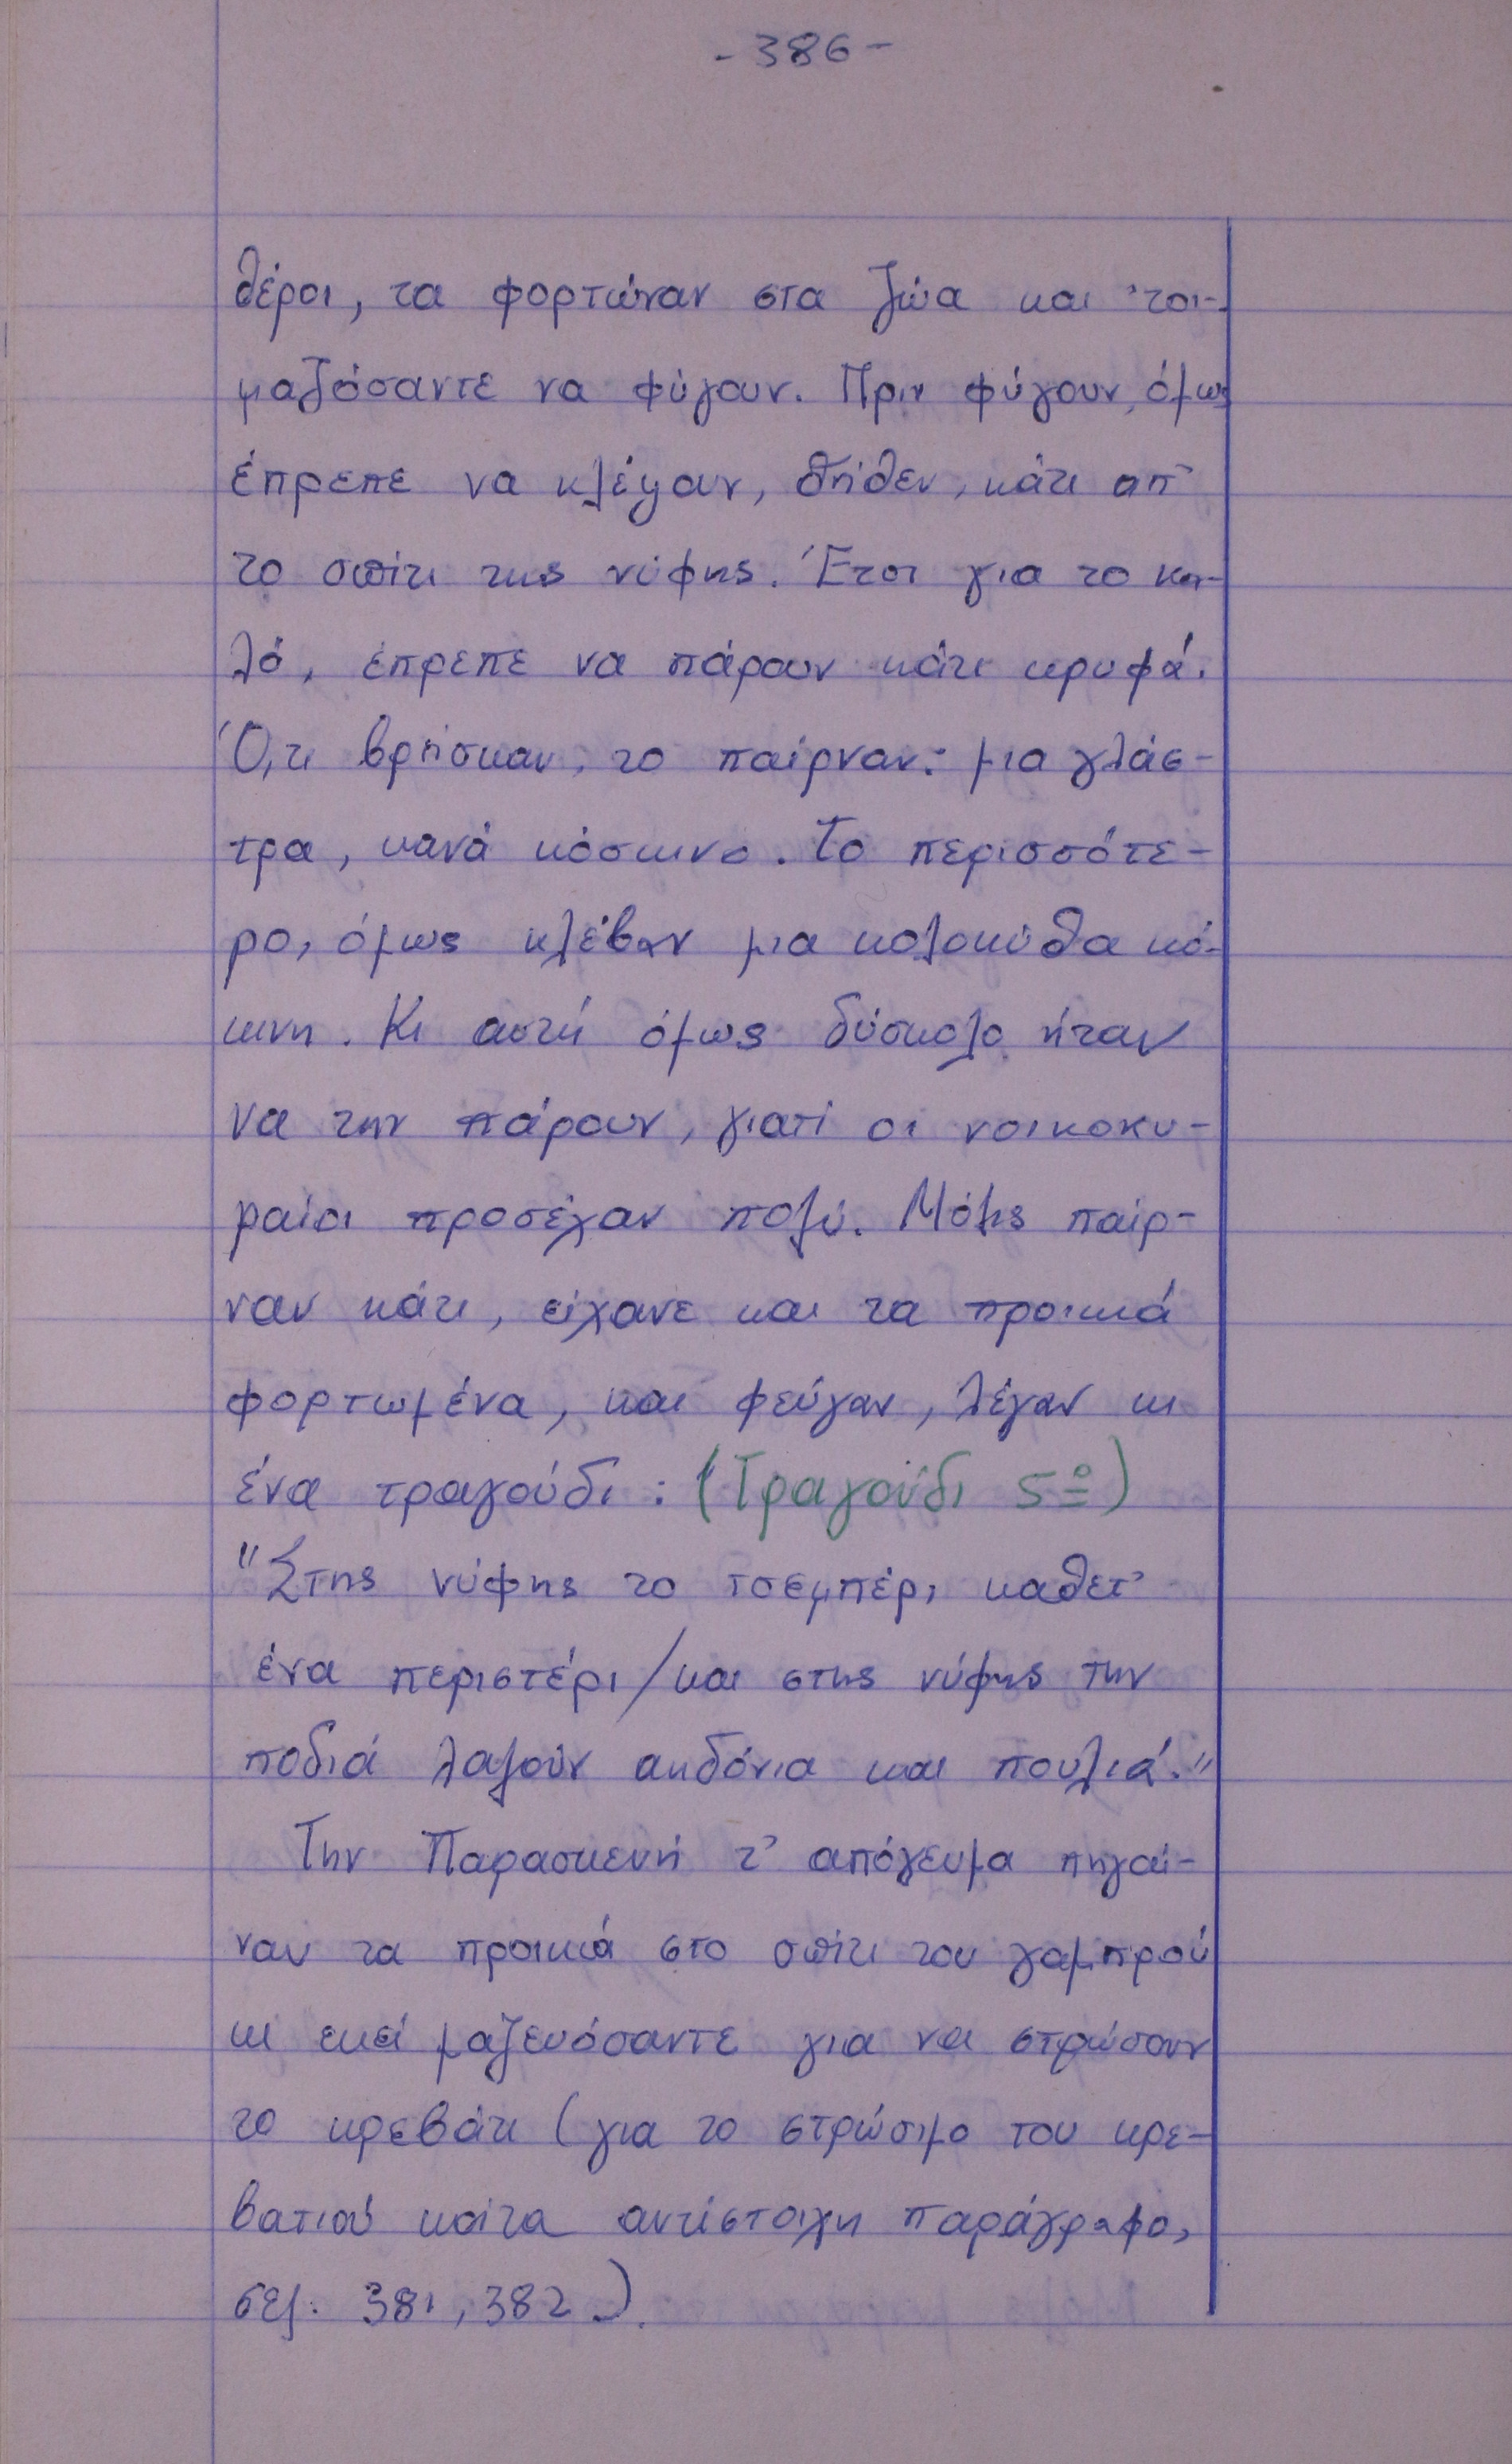 - 386 -
θέροι, τα φορτώναν στα ζώα και 'τοι-
μαζόσαντε να φύγουν. Πριν φύγουν, όμως
έπρεπε να κλέψουν, δήθεν, κάτι απ'
το σπίτι της νύφης. Έτσι για το κα-
λό, έπρεπε να πάρουν κάτι κρυφά.
Ό,τι βρήσκαν, το παίρναν: μια γλάσ-
τρα, κανά κόσκινο. Το περισσότε-
ρο, όμως κλέβαν μια κολοκύθα κό-
κινη. Κι αυτή όμως δύσκολο ήταν
να την πάρουν, γιατί οι νοικοκυ-
ραίοι προσέχαν πολύ. Μόλις παίρ-
ναν κάτι, είχανε και τα προικιά
φορτωμένα, και φεύγαν, λέγαν κι
ένα τραγούδι: (Τραγούδι 5º)
"Στης νύφης το τσεμπέρι καθετ'
ένα περιστέρι/και στης νύφης την
ποδιά λαλούν αηδόνια και πουλιά."
Την Παρασκευή τ' απόγευμα πηγαί-
ναν τα προικιά στο σπίτι του γαμπρού
κι εκεί μαζευόσαντε για να στρώσουν
το κρεβάτι (για το στρώσιμο του κρε-
βατιού κοίτα αντίστοιχη παράγραφο,
σελ. 381, 382).